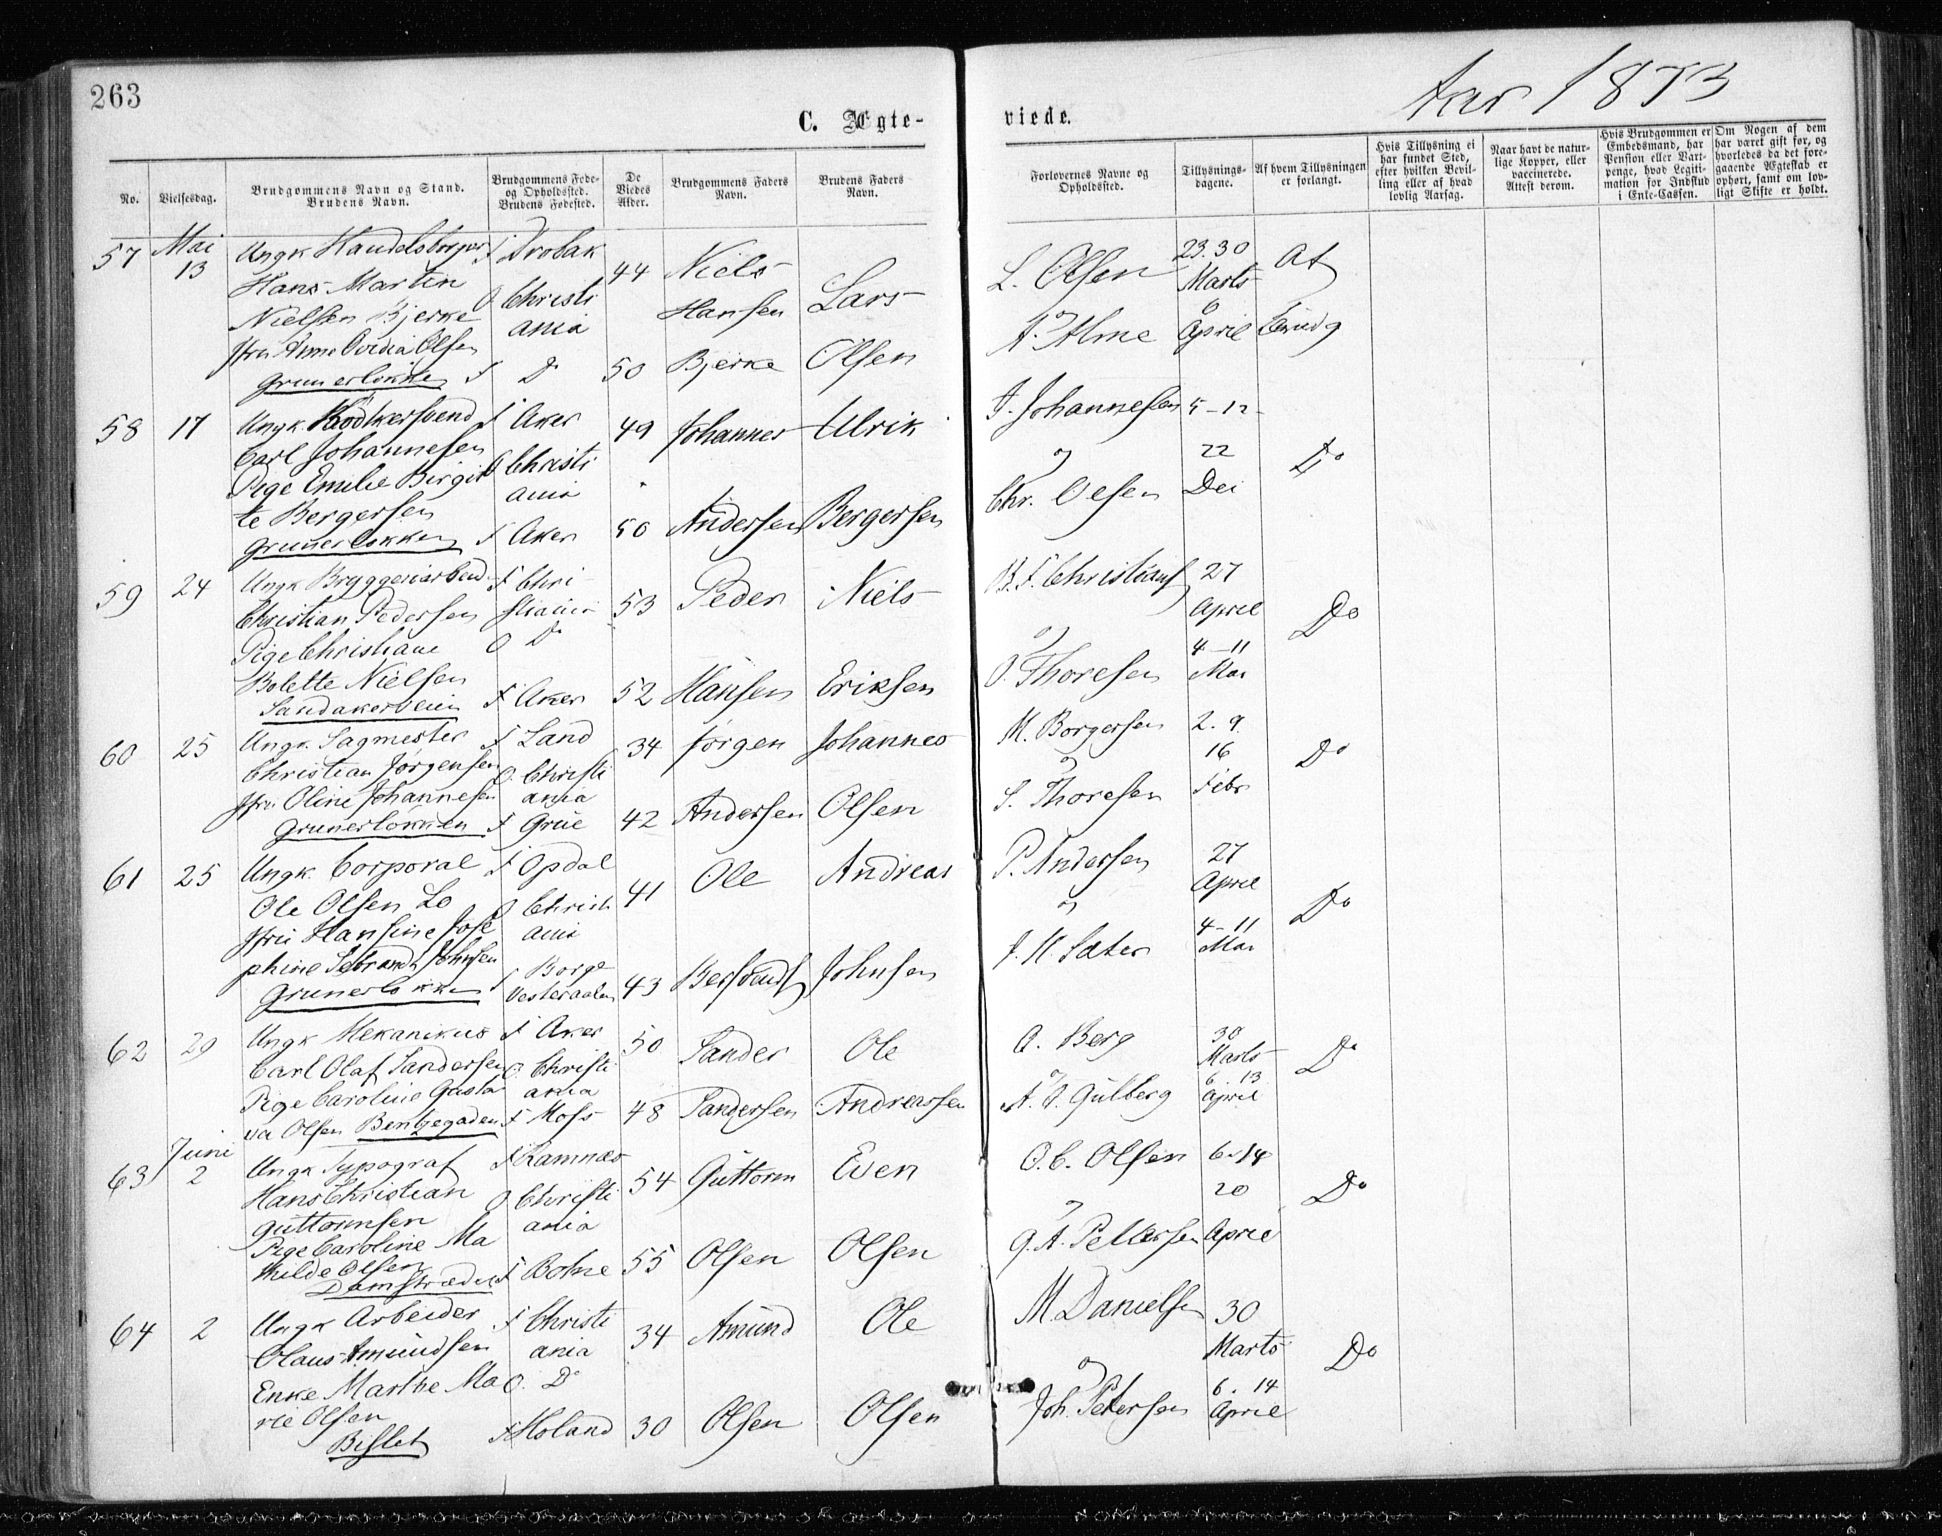 263
Aar 1873
C. Ægte-
viede.
No.
Vielsesdag.
Brudgommens Navn og Stand.
Brudens Navn.
Brudgommens Føde-
og Opholdssted.
Brudens Fødested.
De
Viedes
Alder.
Brudgommens Faders
Navn.
Brudens Faders
Navn.
Forlovernes Navne og
Opholdssted.
Tillysnings-
dagene.
Af hvem Tillysningen
er forlangt.
Hvis Tillysning ei
har fundet Sted,
efter hvilken Bevil-
ling eller af hvad
lovlig Aarsag.
Naar havt de natur-
lige Kopper, eller
vaccinerede.
Attest derom.
Hvis Brudgommen er
Embedsmand, har
Pension eller Vart-
penge, hvad Legiti-
mation for Indskud
i Enke-Cassen.
Om Nogen af dem
har været gift før, og
hvorledes da det fore-
gaaende Ægteskab er
ophørt, samt om lov-
ligt Skifte er holdt.
57 Mai 13
Ungk Handelsborger
Hans Martin
Nielsen Bjerke
Jfru Anne Ovidia Olsen
Grünerløkken
f Drøbak
O Christi
ania
f Do
44
50
Niels
Hansen
Bjerke
Lars
Olsen
L. Olsen
og
A. Alme
23. 30
Marts
6
April
Af
Brudg
58 17
Ungk. Kjødkersvend
Carl Johannesen
Pige Emilie Birgit
te Bergersen
Grünerløkken
f Aker
O Christi
ania
f Aker
49
50
Johannes
Andersen
Ulrik
Bergersen
J. Johannesen
og
Chr. Olsen
5-12
22
Dei
Do
59 24
Ungk Bryggeriarbeid
Christian Pedersen
Pige Christiane
Bolette Nielsen
Sandakerveien
f Chri
stiania
O Do
f Aker
53
52
Peder
Hansen
Niels
Eriksen
B. F. Christians
og
O. Thoresen
27
April
4-11
Mai
Do
60 25
Ungk. Sagmester
Christian Jørgensen
Jfru Oline Johannesen
Grünerløkken
f Land
O. Christi
ania
f Grue
34
42
Jørgen
Andersen
Johannes
Olsen
M. Borgersen
og
S. Thoresen
2. 9.
16
Febr
Do
61 25
Ungk. Corporal
Ole Olsen Lo
Jfru Hansine Jose
phine Sebrandt Johnsen
Grünerløkken
f Opdal
O Christi
ania
f Borge
Vesteraalen
41
43
Ole
Andreas
Johnsen
P. Andersen
og
J. H. Sæter
27
April
4-11
Mai
Do
62 29
Ungk Mekanikus
Carl Olaf Sandersen
Pige Caroline Gusta
va Olsen Bentzegaden
f Aker
O. Christi
ania
f Moss
50
48
Sander
Sandersen
Ole
Andreassen
O. Berg
og
A. O. Gulberg
30
Marts
6. 13
April
Do
63 Juni 2
Ungk Typograf
Hans Christian
Guttormsen
Pige Caroline Ma
thilde Olsen
Damstrædet
f Ramnæs
O Christi
ania
f Botne
54
55
Guttorm
Olsen
Even
Olsen
O. C. Olsen
og
G. A. Pettersen
6. 14
20
April
Do
64 2
Ungk Arbeider
Olaus Amundsen
Enke Marthe Ma
rie Olsen
Bislet
f Christi
ania
O. Do
f Høland
34
30
Amund
Olsen
Ole
Olsen
M. Danielsen
og
Joh. Petersen
30
Marts
6. 14
April
Do